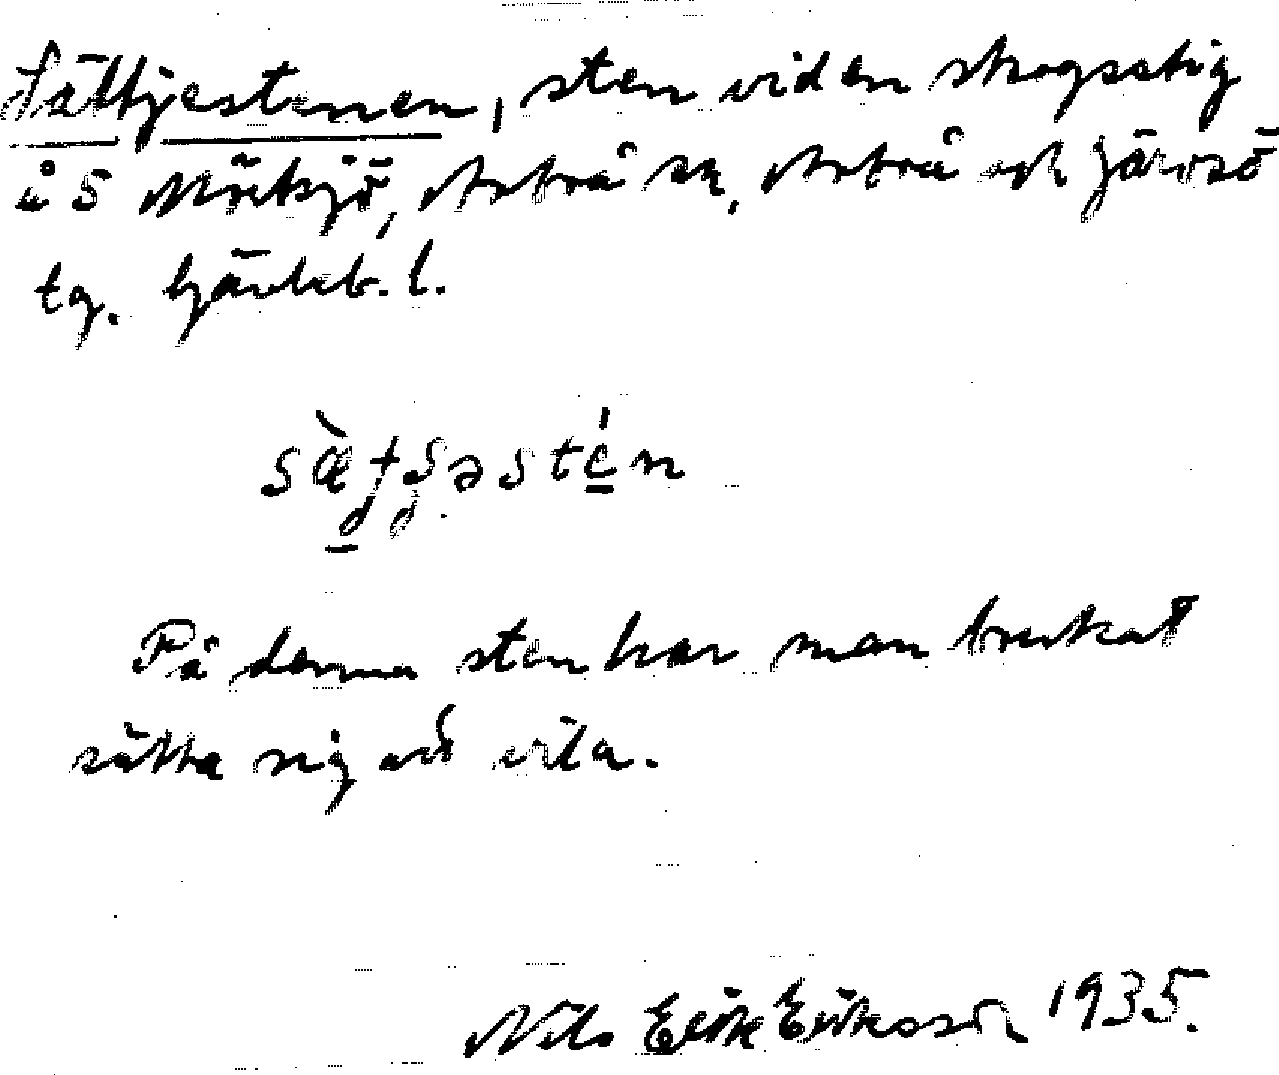 Sättjestenen, sten vid en skogsstig
å S Mörtsjö, Arbrå sn, Arbrå och Järvsö
tg. Gävleb. l.
På denna sten har man brukat
sätta sig och vila.
Nils Erik Eriksson 1935.